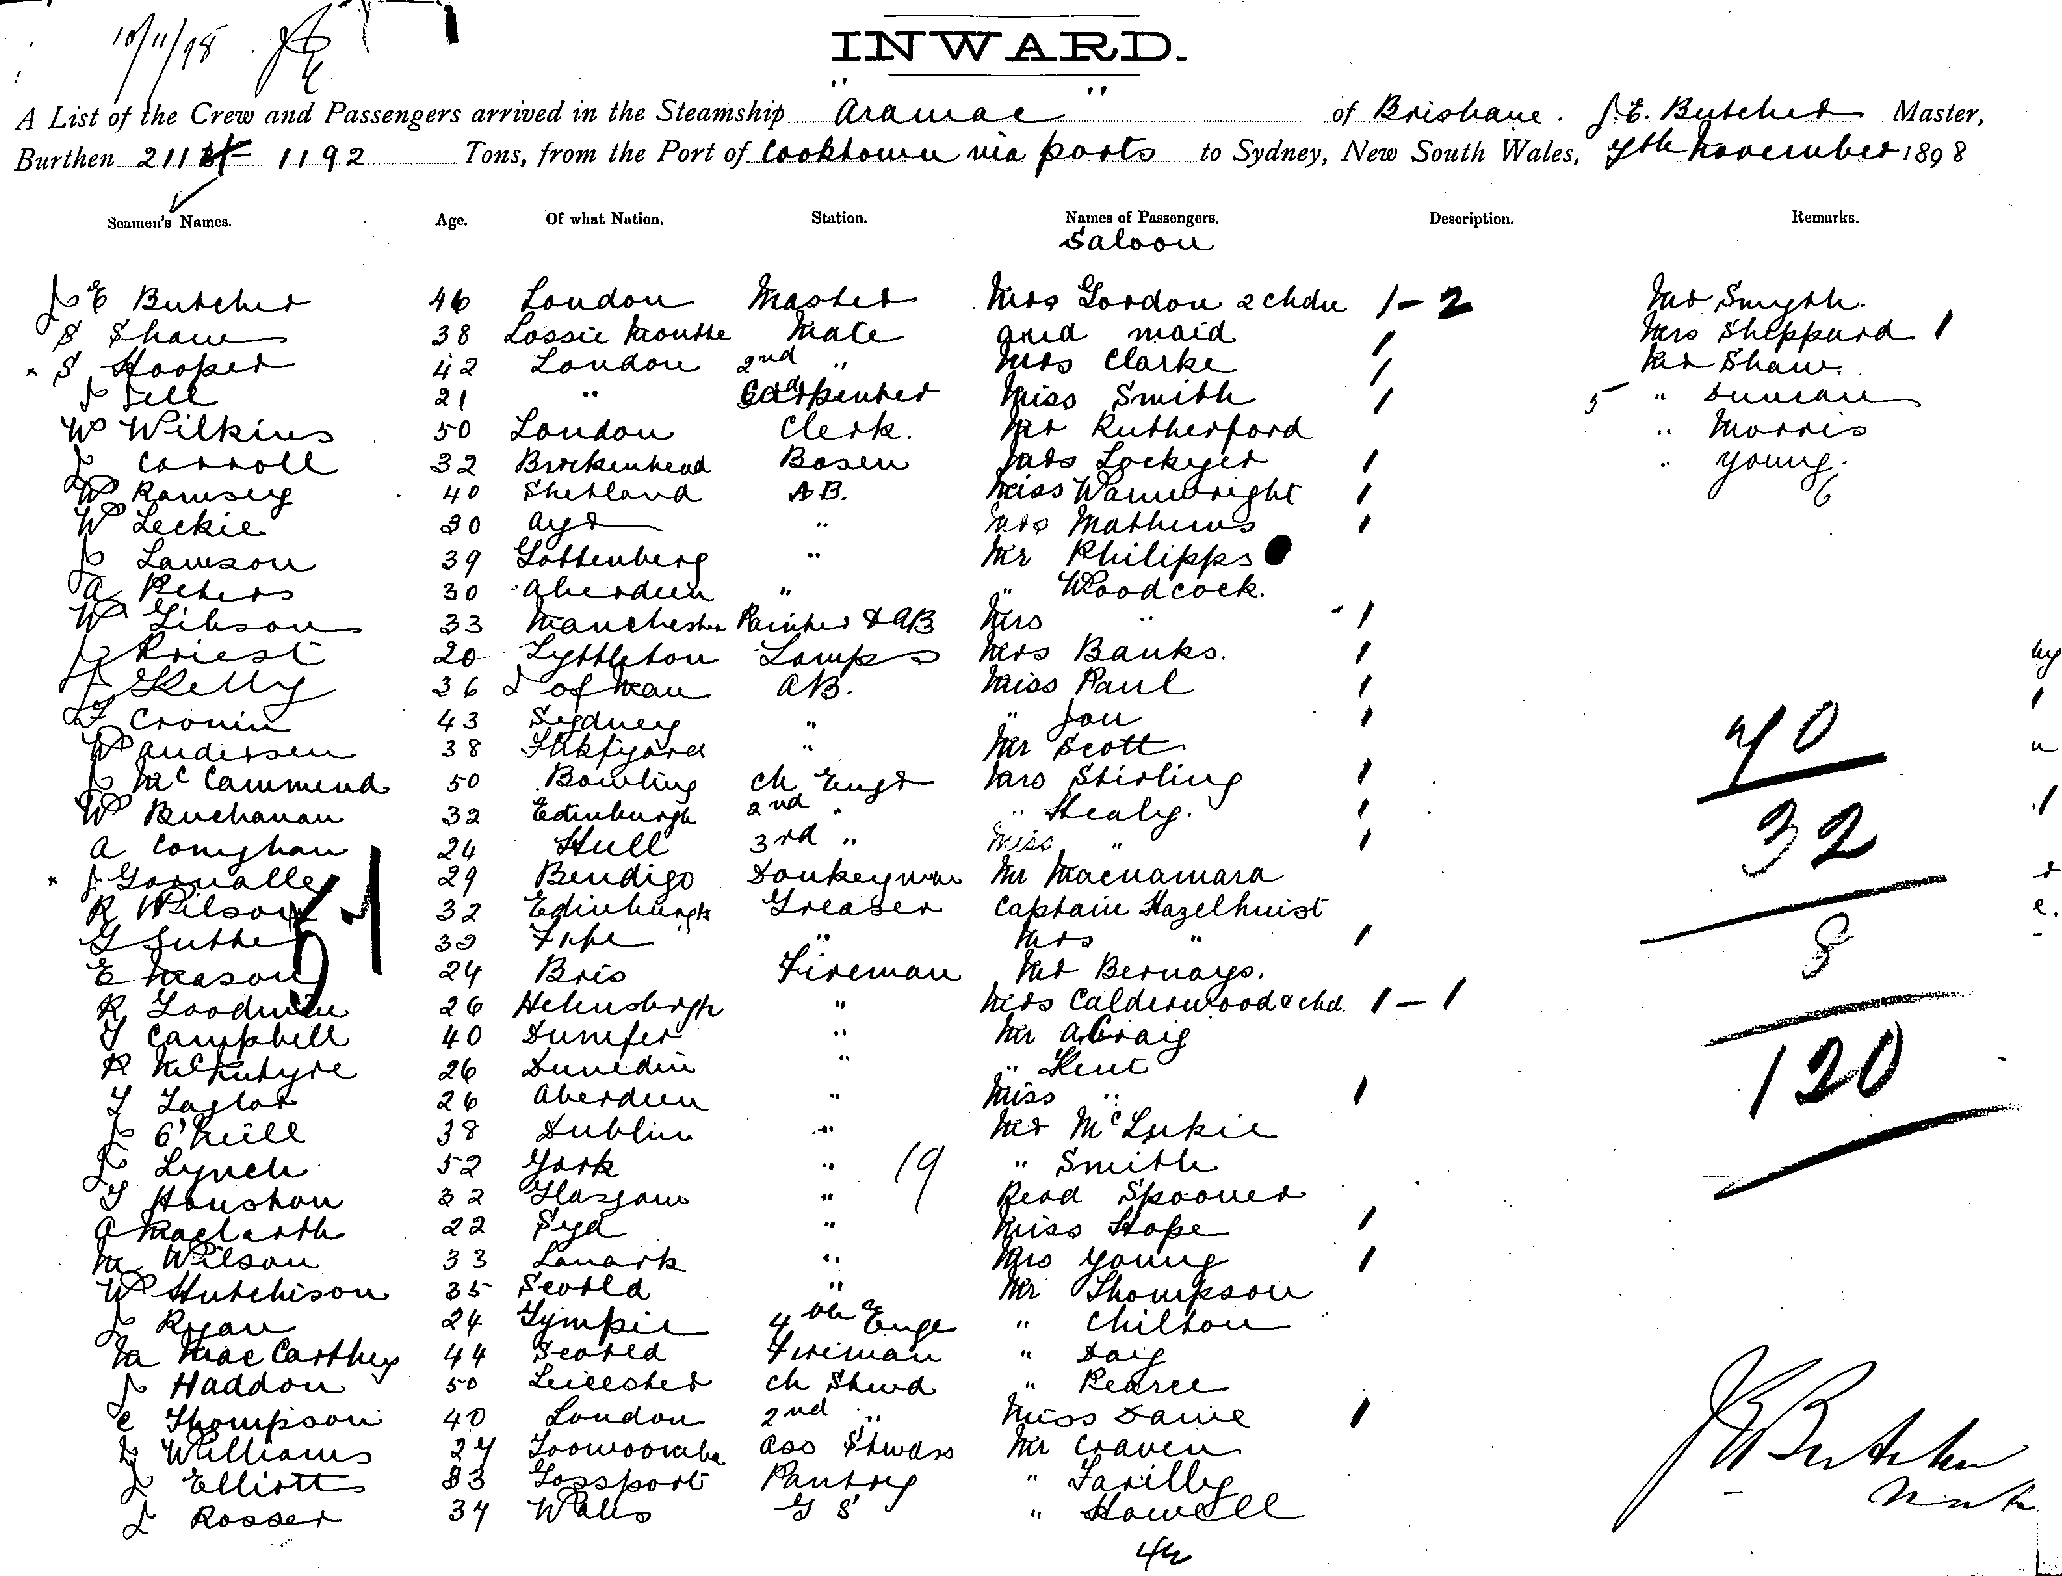 10/11/98
INWARD.
A List of the Crew and Passengers arrived in the Steamship "Aramac" of Brisbane. J. E. Butcher Master,
Burthen 1192 Tons, from the Port of Cooktown via ports to Sydney, New South Wales, 7th November 1898
Seamen's Names. Age. Of what Nation. Station. Names of Passengers. Description. Remarks.
Saloon
J E Butcher 46 London Master Mrs Gordon 2 chdn 1-2 Mr Smyth.
S Shaw 38 Lossie Mouthe Mate and maid 1 Mrs Sheppard 1
S Hooper 42 London 2nd " Mrs Clarke 1 Mr Shaw.
J Tell 21 " Carpenter Miss Smith 1 5 " Duncan
W Wilkins 50 London Clerk. Mr Rutherford " Morris
J Carroll 32 Birkenhead Bosen Mrs Lockyer 1 " Young.
W Ramsey 40 Shetland AB. Miss Wainwright 1
W Leckie 30 Ayr " Mrs Mathews 1
J Lawson 39 Gottenberg " Mr Philipps
A Peters 30 Aberdeen " " Woodcock.
W Gibson 33 Manchester Painter & AB Mrs " 1
J Priest 20 Lyttleton Lamps Mrs Banks. 1
J Kelly 36 I of Man AB. Miss Paul 1
T Cronin 43 Sydney " " Jon 1
W Andersen 38 " Mr Scott
J McCammend 50 Bowling Ch Engr Mrs Stirling 1
W Buchanan 32 Edinburgh 2nd " " Healy. 1
A Conyghan 24 Hull 3rd " Miss " 1
J Gornalle 29 Bendigo Donkeyman Mr Macnamara
R Wilson 32 Edinburgh Greaser Captain Hazelhurst
G Suther 33 Fife " Mrs " 1
E Mason 24 Bris Fireman Mr Bernays.
R Goodwin 26 Helensburgh " Mrs Calderwood & chd 1-1
T Campbell 40 Dumfer " Mr A Craig
R McIntyre 26 Dunedin " " Kent
T Taylor 26 Aberdeen " Miss " 1
J O'Neill 38 Dublin " Mr McLukie
J Lynch 52 York " 19 " Smith
T Houston 32 Glasgow " Revd Spooner
A MacGarth 22 Syd " Miss Hope 1
M Wilson 33 Lanark " Mrs Young 1
W Hutchison 35 Scotld " Mr Thompson
J Ryan 24 Gympie 4th Enge " Chilton
M MacCarthey 44 Scotld Fireman " Day
J Haddon 50 Leicester Ch Stwd " Pearce
C Thompson 40 London 2nd " Miss Dawe 1
J Williams 27 Toowoomba Ass Stwdss Mr Craven
J Elliott 33 Gossport Pantry " Tarilly
J Rosser 34 Wales G S " Howell
51
40
32
8
120
J E Butcher